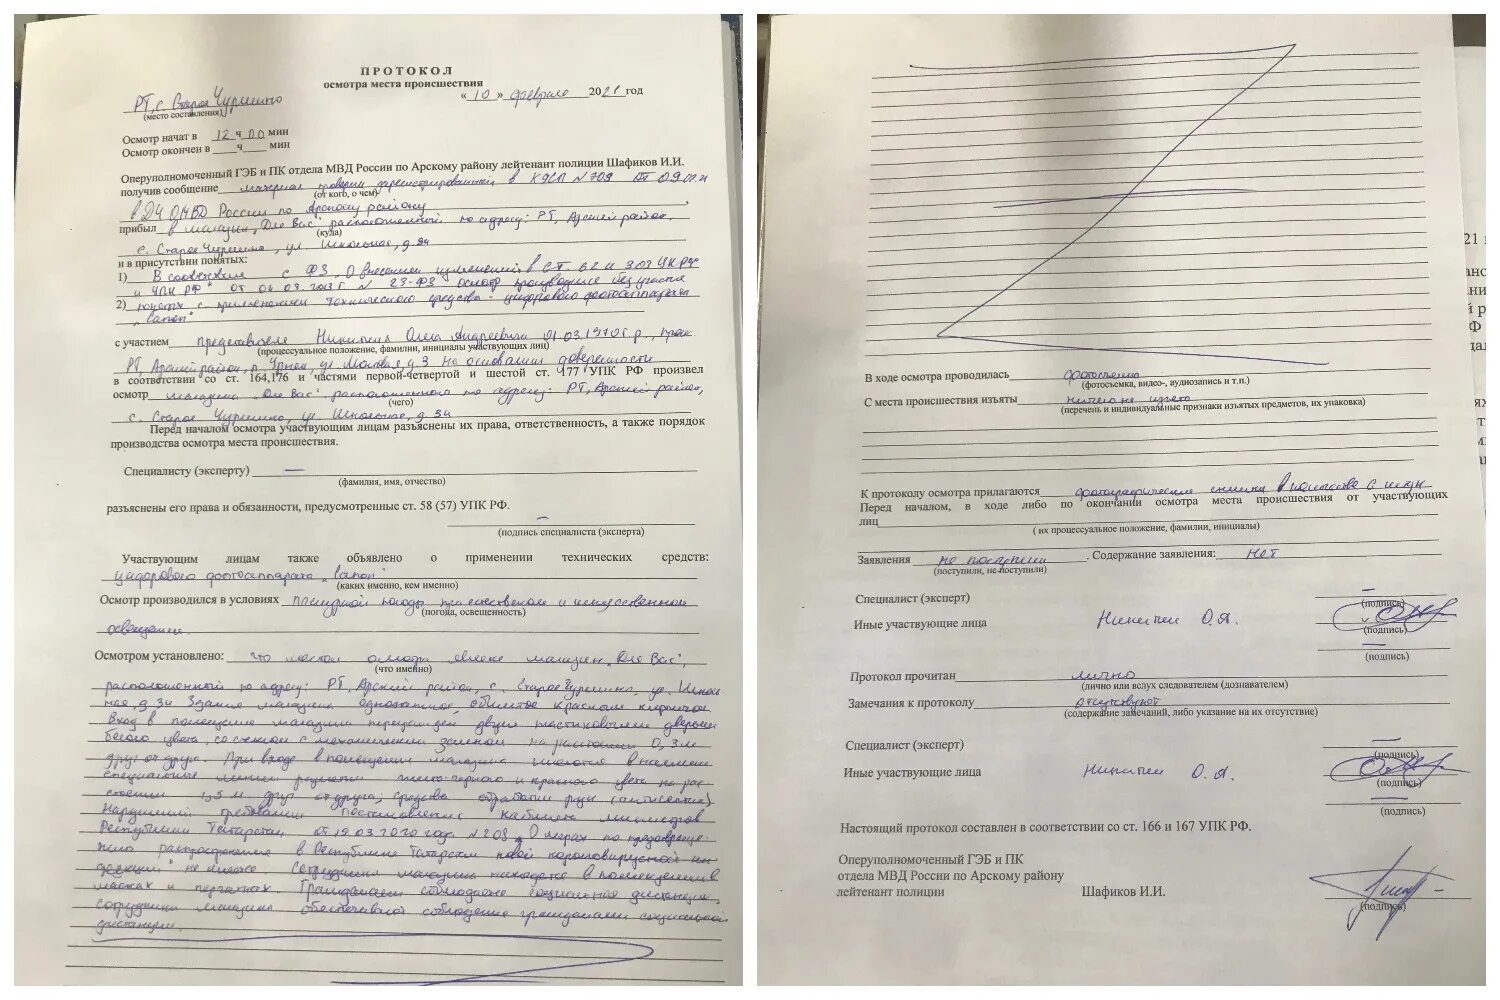 ПРОТОКОЛ
осмотра места происшествия
РТ, с. Старое Чурилино « 10 » февраля 2021 год
(место составления)
Осмотр начат в 12 ч 00 мин
Осмотр окончен в ___ ч ___ мин
Оперуполномоченный ГЭБ и ПК отдела МВД России по Арскому району лейтенант полиции Шафиков И.И.
получив сообщение материал проверки зарегистрированный в КУСП №709 от 09.02.21
(от кого, о чем)
в ДЧ ОМВД России по Арскому району
прибыл в магазин „Для Вас" расположенный по адресу: РТ, Арский район,
(куда)
с. Старое Чурилино, ул. Школьная, д. 3а
и в присутствии понятых:
1) В соответствие с ФЗ „О внесении изменений в СТ. 62 и 303 УК РФ
и УПК РФ" от 04.03.2013г. N 23-ФЗ осмотр произведен без участия
2) понятых с применением технического средства - цифрового фотоаппарата
„Canon"
с участием представителя Никитин Олега Андреевича 01.03.1970 г.р., прож.
(процессуальное положение, фамилии, инициалы участвующих лиц)
РТ, Арский район, п. Урняк, ул. д. 3 на основании доверенности
в соответствии со ст. 164,176 и частями первой-четвертой и шестой ст. 177 УПК РФ произвел
осмотр магазина „Для Вас", расположенного по адресу: РТ, Арский район,
(чего)
с. Старое Чурилино, ул. Школьная, д 3а
Перед началом осмотра участвующим лицам разъяснены их права, ответственность, а также порядок
производства осмотра места происшествия.
Специалисту (эксперту) —
(фамилия, имя, отчество)
разъяснены его права и обязанности, предусмотренные ст. 58 (57) УПК РФ.
—
(подпись специалиста (эксперта)
Участвующим лицам также объявлено о применении технических средств:
цифрового фотоаппарата „Canon"
(каких именно, кем именно)
Осмотр производился в условиях пасмурной погоды при естественном и искусственном
(погода, освещенность)
освещении
Осмотром установлено: что местом осмотра является магазин „Для Вас",
(что именно)
расположенный по адресу: РТ, Арский район, с. Старое Чурилино, ул. Школь
ная, д. 3а Здание магазина одноэтажное, обшитое красным кирпичом.
Вход в помещение магазина прегражден двумя пластиковыми дверьми
белого цвета, с механическим на расстоянии 0,3м
друг от друга. При входе в помещение магазина имеются в наличии
специальные линии разметки черного и красного цвета на рас
стоянии 1,5 м. друг от друга, средства обработки рук (антисептик)
Нарушений требований постановления кабинета министров
Республики Татарстан от 19.03.2020 года №208 „О мерах по предотвраще-
нию распространения в Республике Татарстан новой коронавирусной ин
фекции" не имеется. Сотрудники магазина находятся в помещении в
масках и перчатках. Гражданами соблюдена социальная дистанция,
сотрудники магазина обеспечивают соблюдение гражданами социальной
дистанции.
В ходе осмотра проводилась фотосъемка
(фотосъемка, видео-, аудиозапись и т.п.)
С места происшествия изъяты ничего не изъято
(перечень и индивидуальные признаки изъятых предметов, их упаковка)
К протоколу осмотра прилагаются фотографические снимки в количестве 6 штук
Перед началом, в ходе либо по окончании осмотра места происшествия от участвующих
лиц
( их процессуальное положение, фамилии, инициалы)
Заявления не поступили. Содержание заявления: нет
(поступили, не поступили)
Специалист (эксперт) —
(подпись)
Иные участвующие лица Никитин О.А.
(подпись)
—
(подпись)
Протокол прочитан лично
(лично или вслух следователем (дознавателем)
Замечания к протоколу отсутствуют
(содержание замечаний, либо указание на их отсутствие)
Специалист (эксперт) —
(подпись)
Иные участвующие лица Никитин О.А.
(подпись)
—
(подпись)
Настоящий протокол составлен в соответствии со ст. 166 и 167 УПК РФ.
Оперуполномоченный ГЭБ и ПК
отдела МВД России по Арскому району
лейтенант полиции Шафиков И.И.
(подпись)